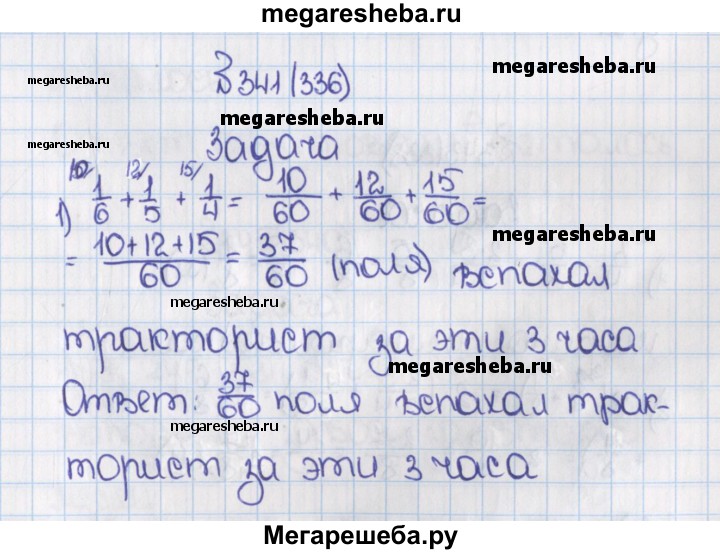 megaresheba.ru
№ 341 (336)
megaresheba.ru
megaresheba.ru
megaresheba.ru
Задача
megaresheba.ru
10/ 12/ 15/
1) 1/6 + 1/5 + 1/4 = 10/60 + 12/60 + 15/60 =
megaresheba.ru
= (10+12+15)/60 = 37/60 (поля) вспахал
megaresheba.ru
тракторист за эти 3 часа
megaresheba.ru
Ответ: 37/60 поля вспахал трак-
megaresheba.ru
megaresheba.ru
торист за эти 3 часа
Мегарешеба.ру